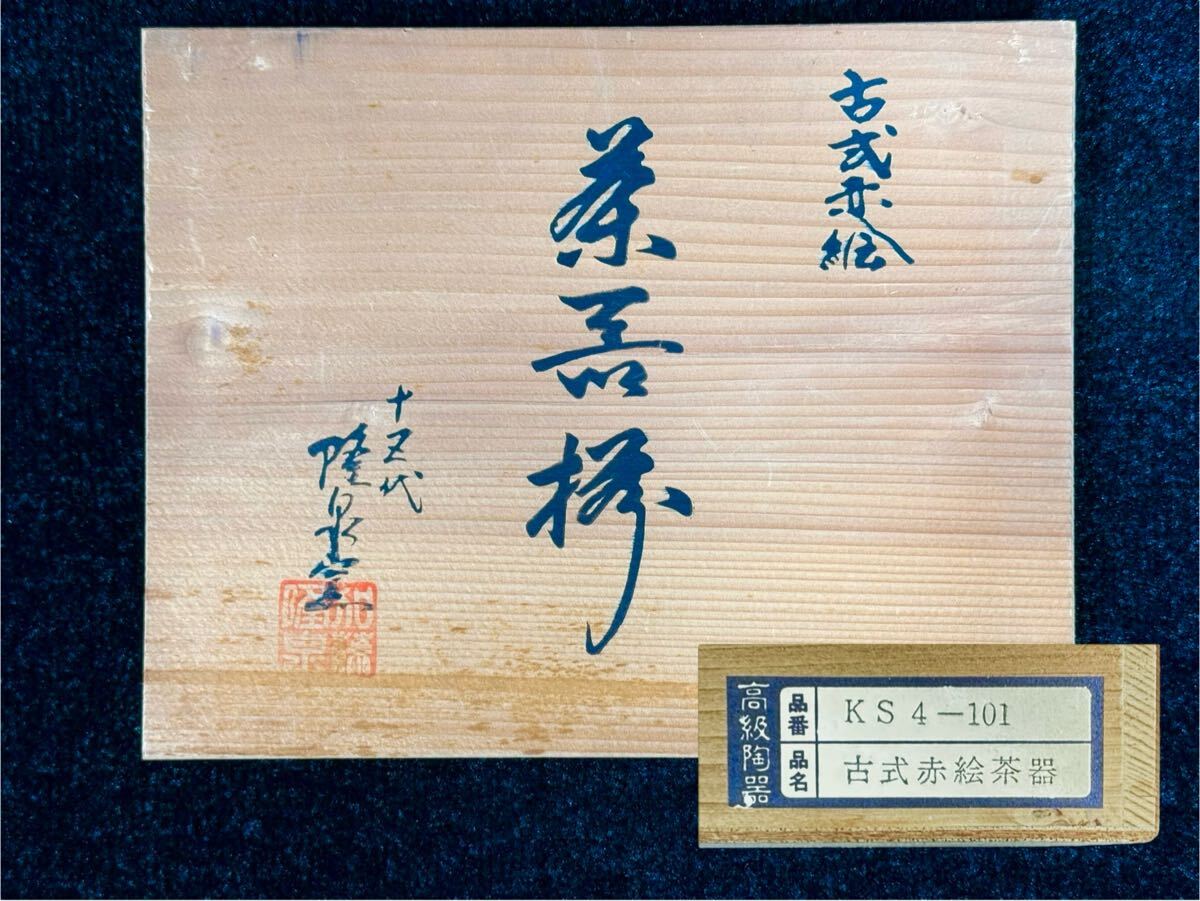 古式赤絵
茶器揃
十五代
隆泉窯
高級陶器
品番 KS4-101
品名 古式赤絵茶器